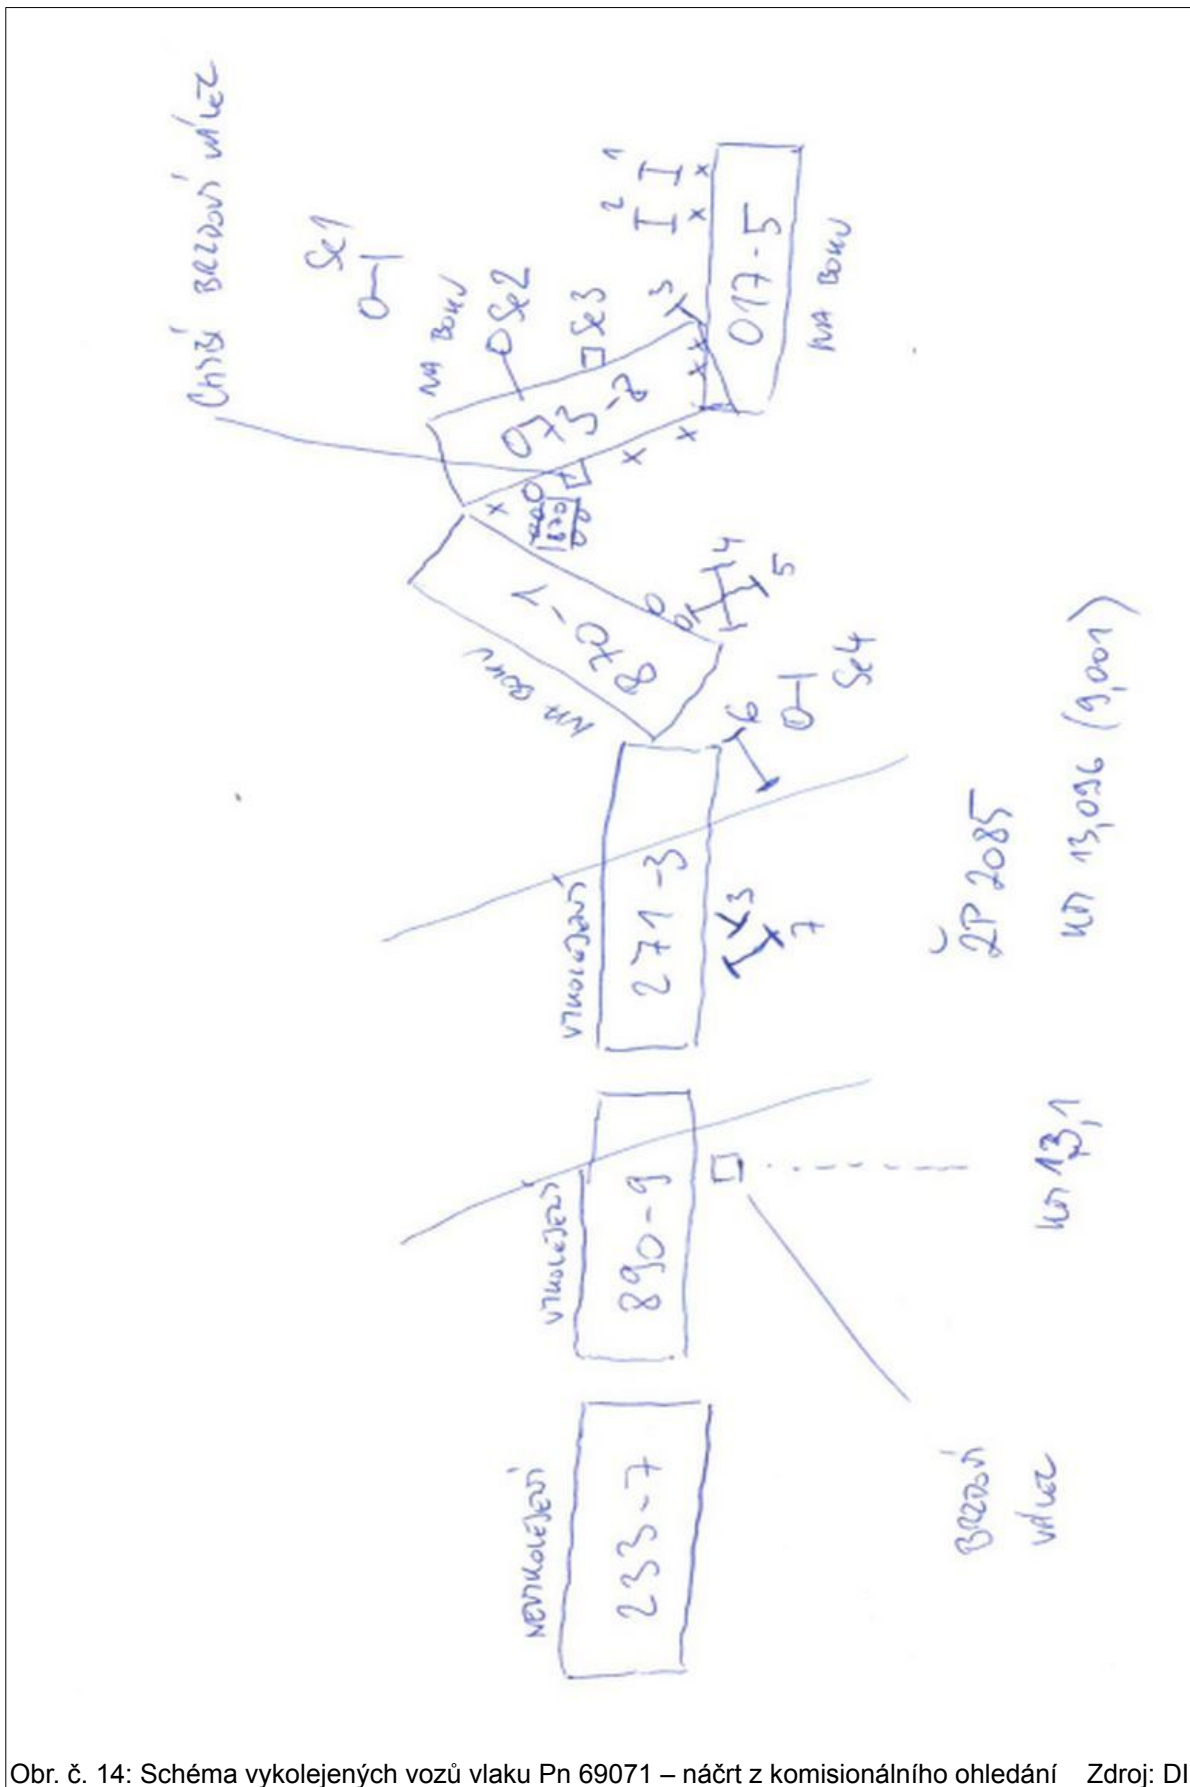 CHYBÍ BRZDOVÝ VÁLEC
Se1
NA BOKU
Se2
Se3
1
2
3
017-5
NA BOKU
073-8
870
870-1
NA BOKU
4
5
6
Se4
VYKOLEJENÝ
271-3
3
7
ŽP 2085
km 13,096 (9,001)
VYKOLEJENÝ
890-9
km 13,1
NEVYKOLEJENÝ
233-7
BRZDOVÝ
VÁLEC
Obr. č. 14: Schéma vykolejených vozů vlaku Pn 69071 – náčrt z komisionálního ohledání Zdroj: DI